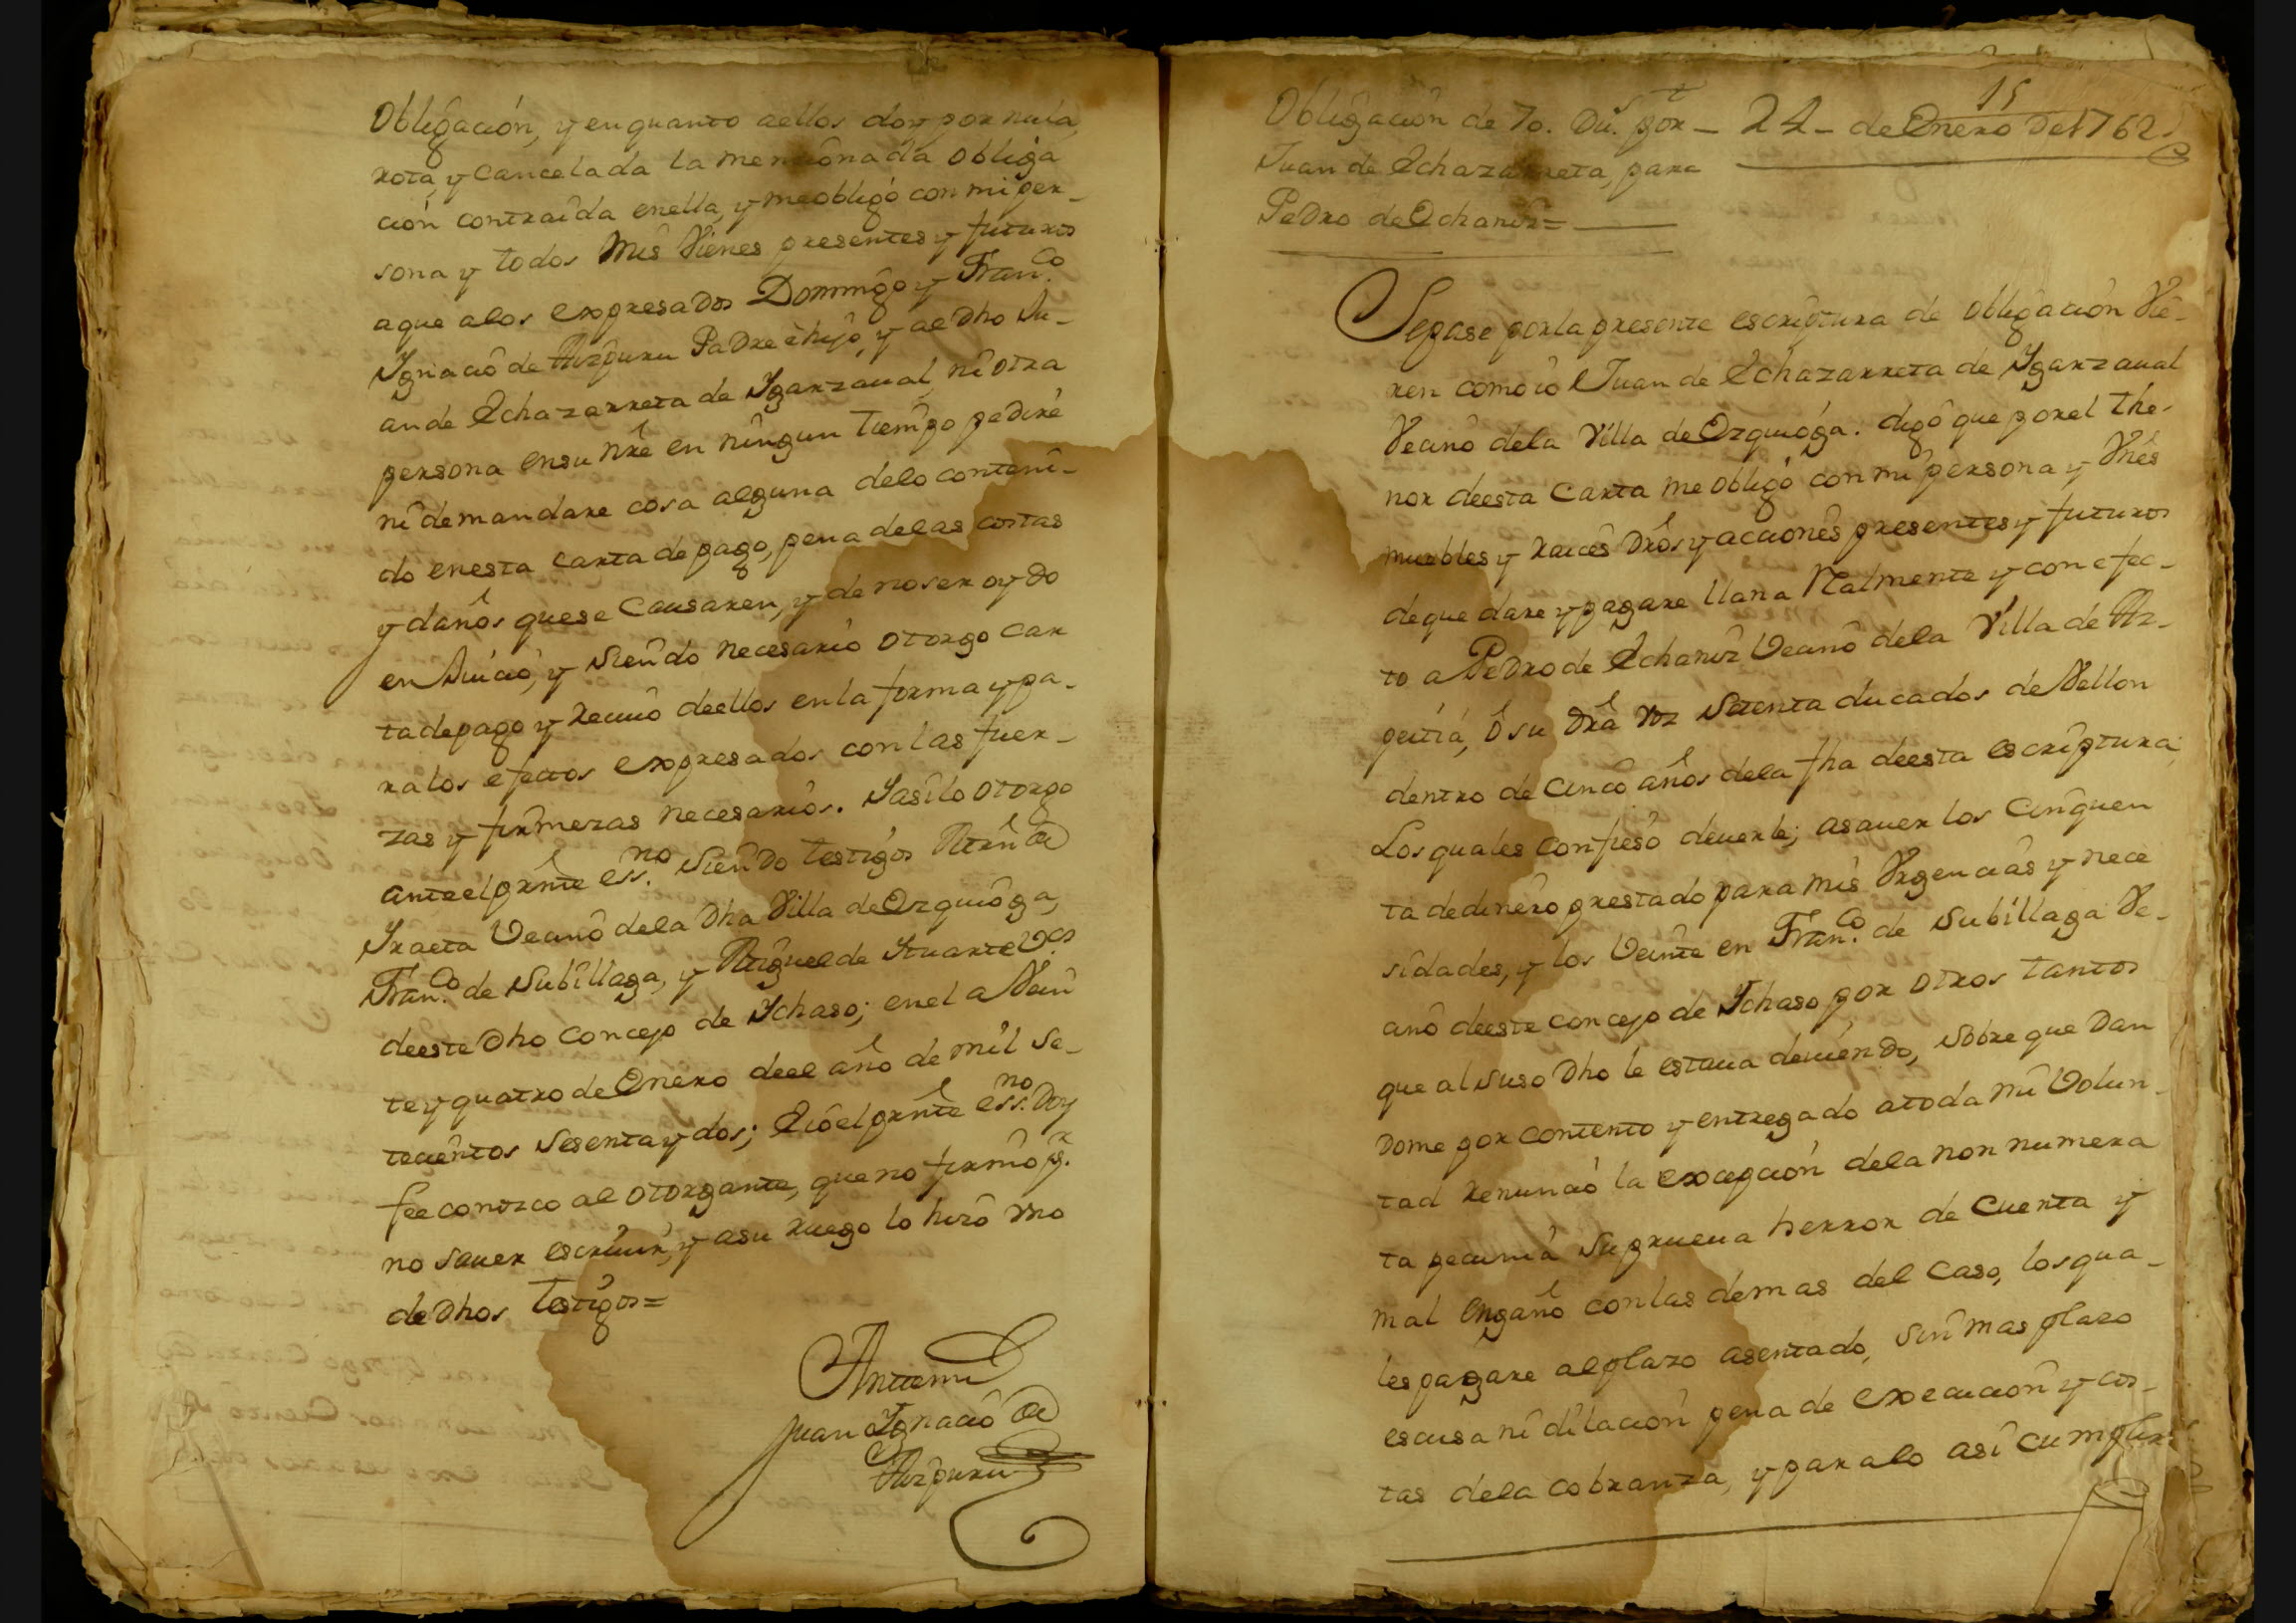 Obligación, y en quanto a ellos doy por nula,
rota, y Cancelada la mencionada obliga
ción contraída en ella, y me obligó con mi per-
sona y todos mis Vienes presentes y futuros
a que a los expresados Domingo y Fran.co
Ygnacio de Aizpuru Padre é hijo, y al Dho Ju-
an de Echazarreta de Ygarzaual, ni otra
persona en su nrê en ningun tiempo pediré
ni demandare cosa alguna delo conteni-
do en esta Carta de pago, pena delas costas
y daños que se Causaren, y de no ser oydo
en Juicio, y siendo necesario otorgo Car
ta de pago y recivo de ellos en la forma y pa-
ra los efectos expresados con las fuer-
zas y firmezas necesarios. Y asi lo otorgo
ante el prnte ess.no siendo testigos Mrn de
Yraeta Vecino de la Dha Villa de Ezquioga,
Fran.co de Subillaga, y Miguel de Ytuarte Vcs
de este Dho Concejo de Ychaso; en el a Vein
te y quatro de Enero de el año de mil se-
tecientos sesenta y dos; E io el prnte ess.no Doy
fee conozco al otorgante, que no firmó pr.
no saver escriuir, y a su ruego lo hizo vno
de Dhos testigos=
Antemi
Juan Ygnacio de
Aizpuru
15
Obligación de 70. Du.s por - 24 - de Enero De 1762
Juan de Echazarreta, para
Pedro de Echaniz=
Sepase por la presente escriptura de obligación Vie-
ren como io Juan de Echazarreta de Ygarzaual
Vecino dela Villa de Ezquioga: digo que por el the-
nor de esta Carta me obligó con mi persona y Vnês
muebles y raices Drôs y acciones presentes y futuros
de que dare y pagare llana Realmente y con efec-
to a Pedro de Echaniz Vecino dela Villa de Az-
peitia, ó su Drâ voz Setenta ducados de Vellon
dentro de Cinco años dela fha de esta escriptura;
Los quales confieso deuerle; asauer los Cinquen
ta de dinero prestado para mis Vrgencias y nece
sidades, y los Veinte en Fran.co de Subillaga Ve-
cino de este concejo de Ychaso por otros tantos
que al suso Dho le estaua deuiendo, sobre que Dan
Dome por contento y entregado a toda mi Volun-
tad renunció la excepción dela non numera
ta pecunia su prueua herror de Cuenta y
mal engaño con las demas del Caso, los qua-
les pagare al plazo asentado, sin mas plazo
escusa ni dilación pena de execución y cos-
tas dela cobranza, y para lo asi cumplir